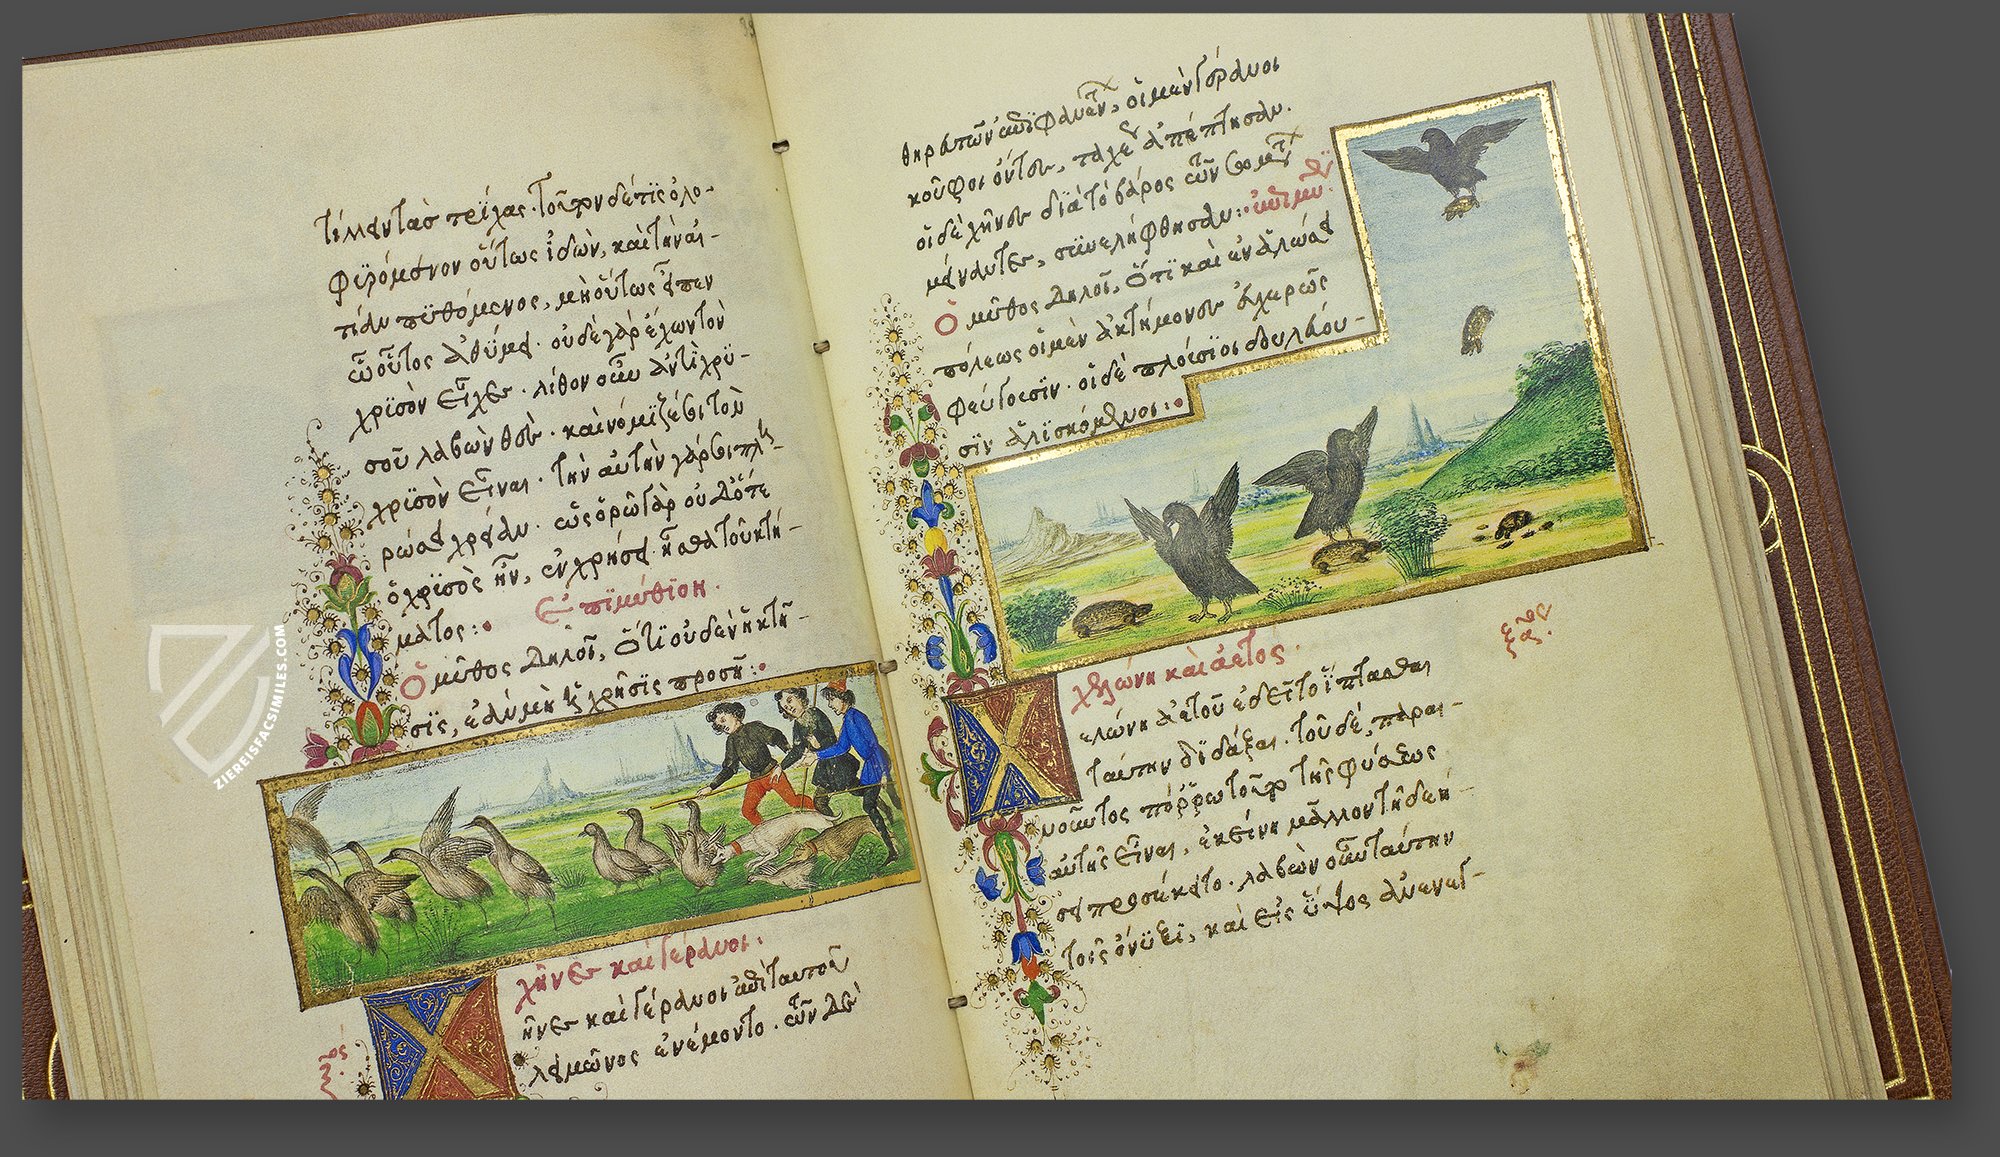 τίλλοντα τὰς τρίχας· τοῦτον δέ τις ὀλο-
φυρόμενον οὕτως ἰδὼν, καὶ τὴν αἰ-
τίαν πυθόμενος, μὴ οὕτως εἶπεν
ὦ οὗτος ἀθύμει· οὐδὲ γὰρ ἔχων τὸν
χρυσὸν εἶχες· λίθον οὖν ἀντὶ χρυ-
σοῦ λαβὼν θὲς· καὶ νόμιζέ σοι τὸν
χρυσὸν εἶναι· τὴν αὐτὴν γάρ σοι πλη-
ρώσει χρείαν· ὡς ὁρῶ γὰρ οὐδ' ὅτε
ὁ χρυσὸς ἦν, ἐν χρήσει ἦσθα τοῦ κτή-
ματος:· Ἐπιμύθιον.
Ὁ μῦθος δηλοῖ, ὅτι οὐδὲν ἡ κτῆ-
σις, ἐὰν μὴ ἡ χρῆσις προσῇ:·
χῆνες καὶ γέρανοι.
ῆνες καὶ γέρανοι ἐπὶ ταυτοῦ
λειμῶνος ἐνέμοντο· τῶν δὲ
θηρευτῶν ἐπιφανέντων, οἱ μὲν γέρανοι
κοῦφοι ὄντες, ταχέως ἀπέπτησαν.
οἱ δὲ χῆνες διὰ τὸ βάρος τῶν σωμάτων
μείναντες, συνελήφθησαν:· ἐπιμύθιον.
Ὁ μῦθος δηλοῖ, ὅτι καὶ ἐν ἁλώσει
πόλεως οἱ μὲν ἀκτήμονες εὐχερῶς
φεύγουσιν· οἱ δὲ πλούσιοι δουλεύου-
σιν ἁλισκόμενοι:·
χελώνη καὶ ἀετός.
ελώνη ἀετοῦ ἐδεῖτο ἵπτασθαι
ταύτην διδάξαι· τοῦ δὲ, παραι-
νοῦντος πόρρω τοῦτο τῆς φύσεως
αὐτῆς εἶναι, ἐκείνη μᾶλλον τῇ δεή-
σει προσέκειτο· λαβὼν οὖν ταύτην
τοῖς ὄνυξι, καὶ εἰς ὕψος ἀνενεγ-
ZIEREISFACSIMILES.COM